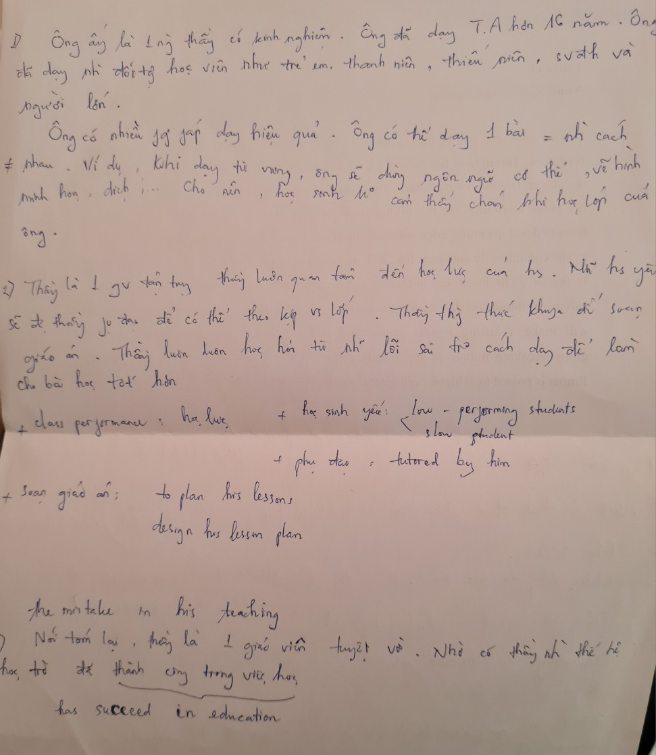 1) Ông ấy là 1 ng thầy có kinh nghiệm. Ông đã dạy T.A hơn 16 năm. Ông
đã dạy nh đối tg học viên như trẻ em, thanh niên, thiếu niên, svđh và
người lớn.
Ông có nhiều pp dạy hiệu quả. Ông có thể dạy 1 bài = nh cách
≠ nhau. Ví dụ, khi dạy từ vựng, ông sẽ dùng ngôn ngữ cơ thể, vẽ hình
minh hoạ, dịch ... Cho nên, học sinh ko cảm thấy chán khi học lớp của
ông.
2) Thầy là 1 gv tận tụy thầy luôn quan tâm đến học lực của hs. Nh~ hs yếu
sẽ đc thầy phụ đạo để có thể theo kịp vs lớp. Thầy thg thức khuya để soạn
giáo án. Thầy luôn luôn học hỏi từ nh lỗi sai trg cách dạy để làm
cho bài học tốt hơn
+ class performance: học lực
+ học sinh yếu: low - performing students
slow student
+ phụ đạo: tutored by him
+ soạn giáo án: to plan his lessons
design his lesson plan
the mistake in his teaching
) Nói tóm lại, thầy là 1 giáo viên tuyệt vời. Nhờ có thầy nh thế hệ
học trò đã thành công trong việc học
has succeed in education